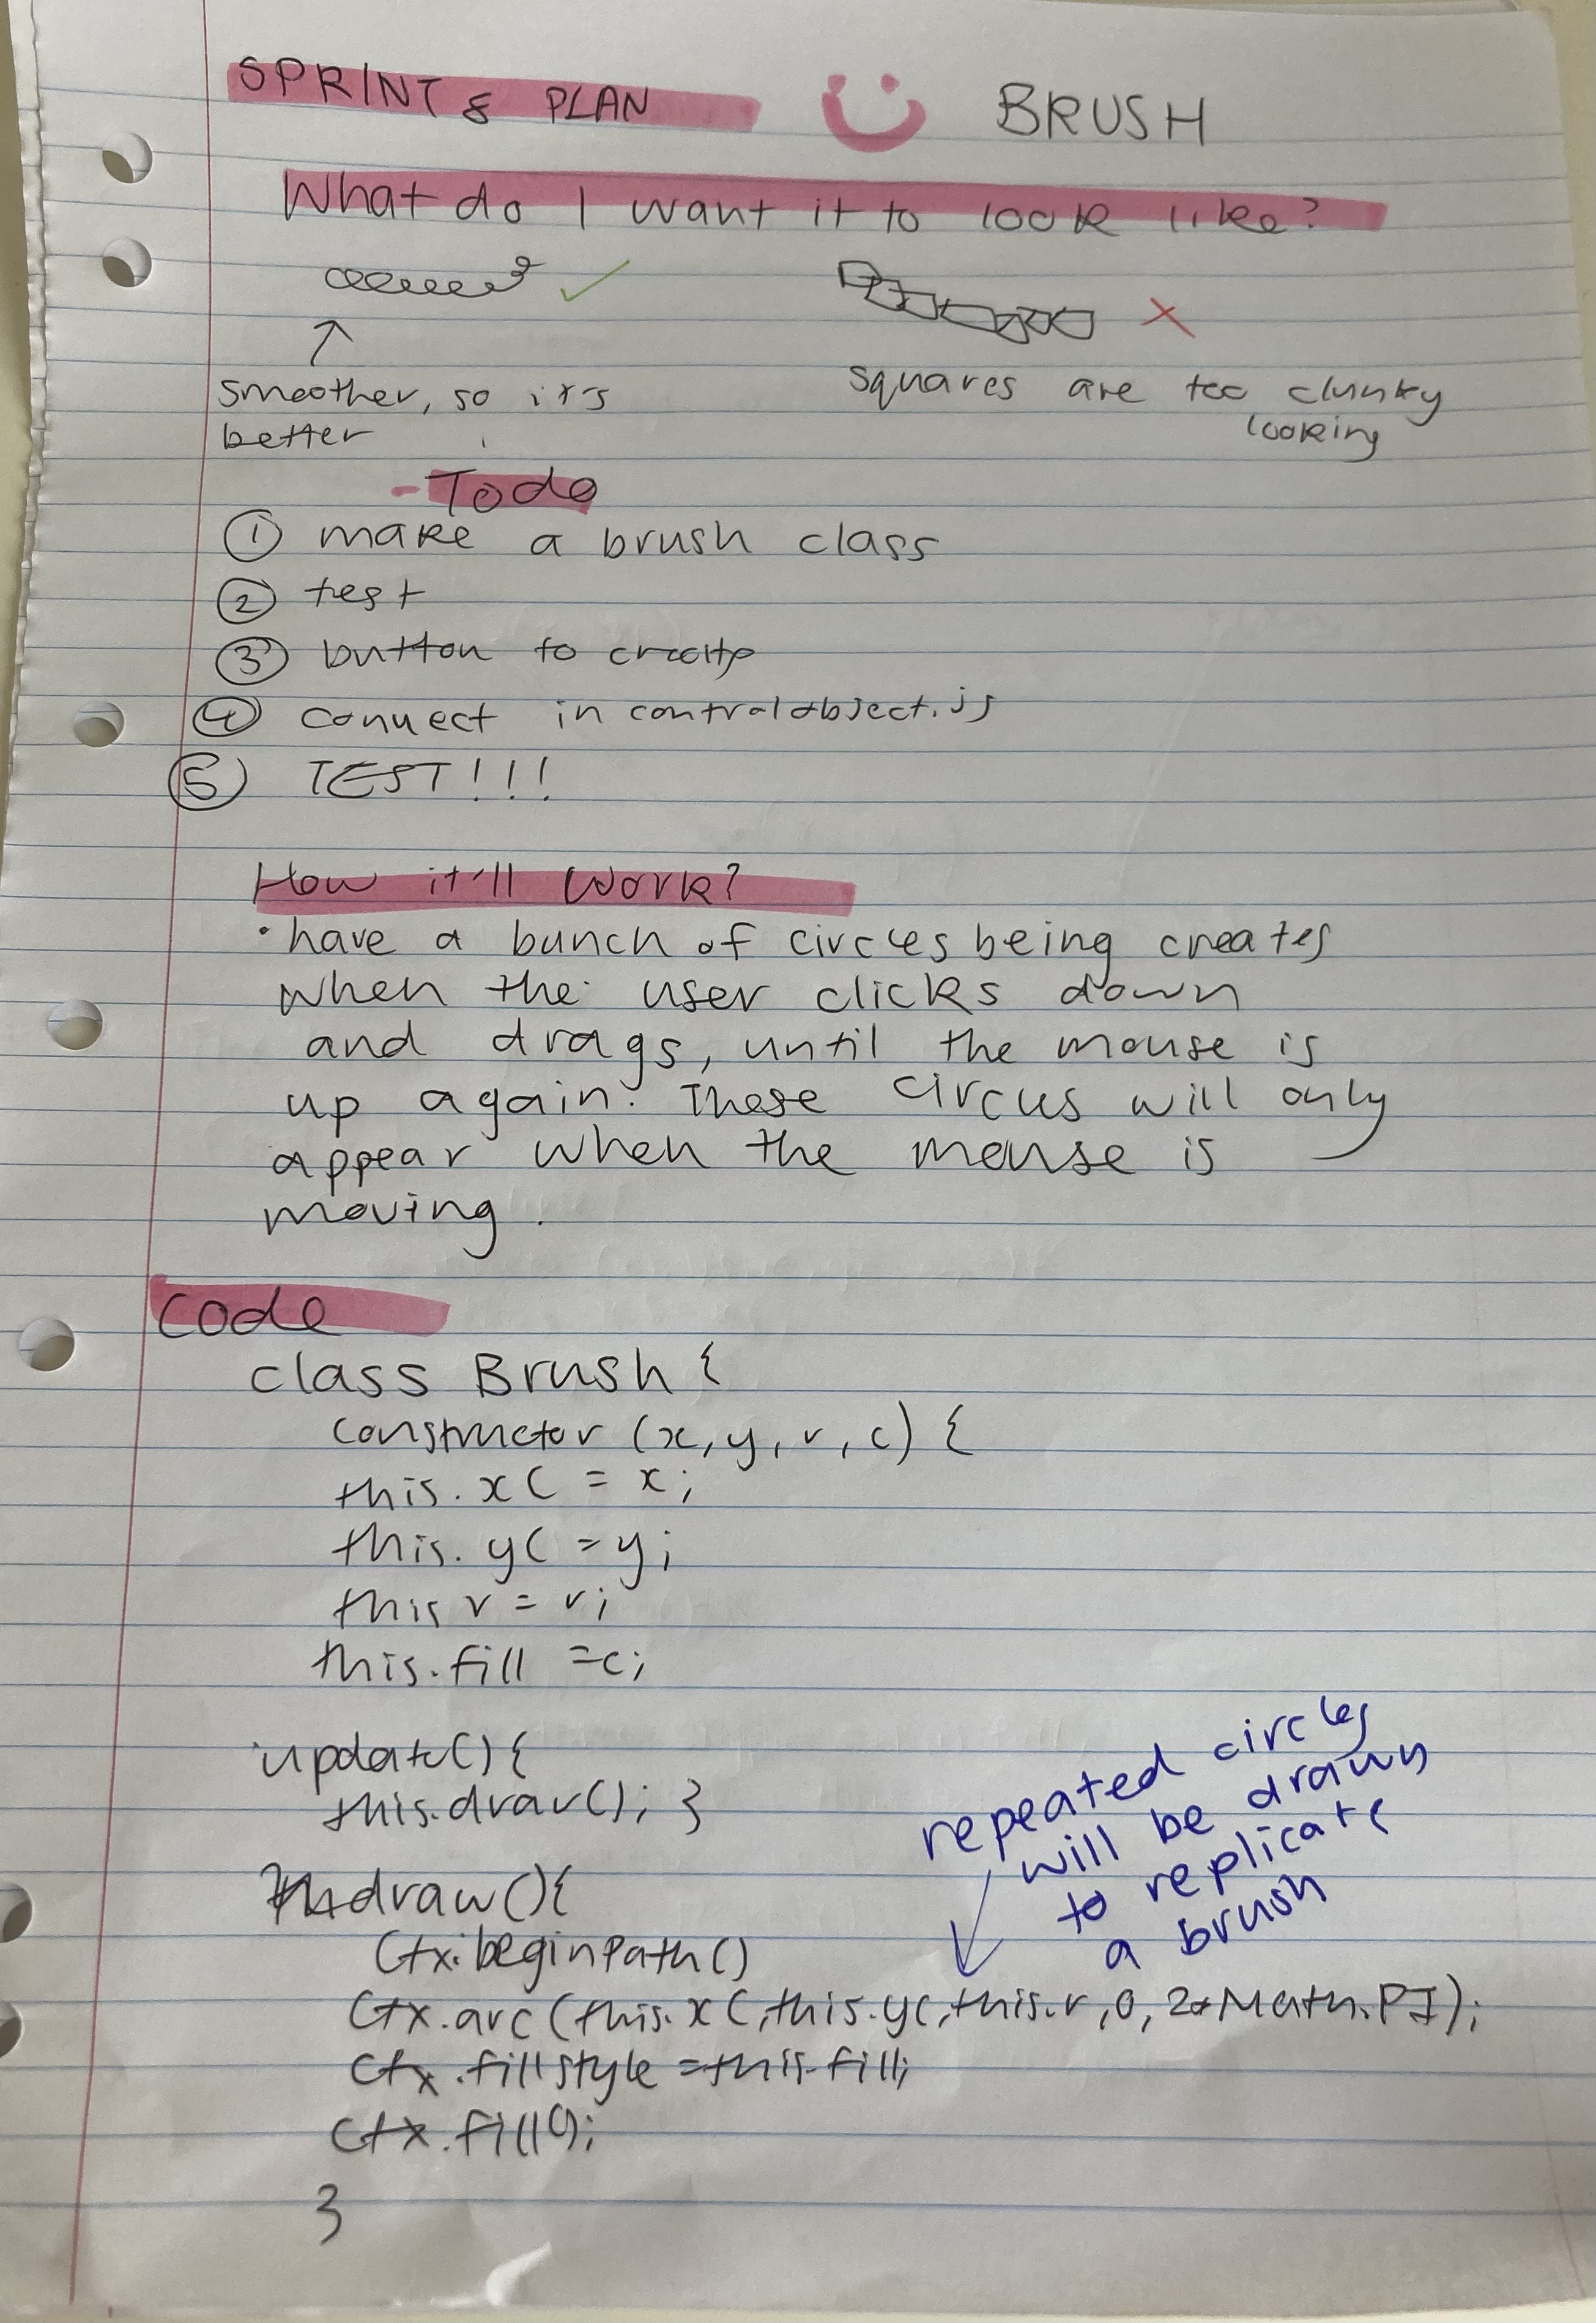 SPRINT 8 PLAN BRUSH
What do I want it to look like?
smoother, so it's
better
squares are too clunky
looking
- Todo
① make a brush class
② test
③ button to create
④ connect in controlobject.js
⑤ TEST!!!
How it'll work?
• have a bunch of circles being creates
when the user clicks down
and drags, until the mouse is
up again. These circles will only
appear when the mouse is
moving.
Code
class Brush {
constructor (x, y, r, c) {
this.xC = x;
this.yC = y;
this r = r;
this.fill = c;
update() {
this.draw(); }
draw(){
Ctx.beginPath()
Ctx.arc(this.xC, this.yC, this.r, 0, 2*Math.PI);
Ctx.fillstyle = this.fill;
Ctx.fill();
}
repeated circles
will be drawn
to replicate
a brush